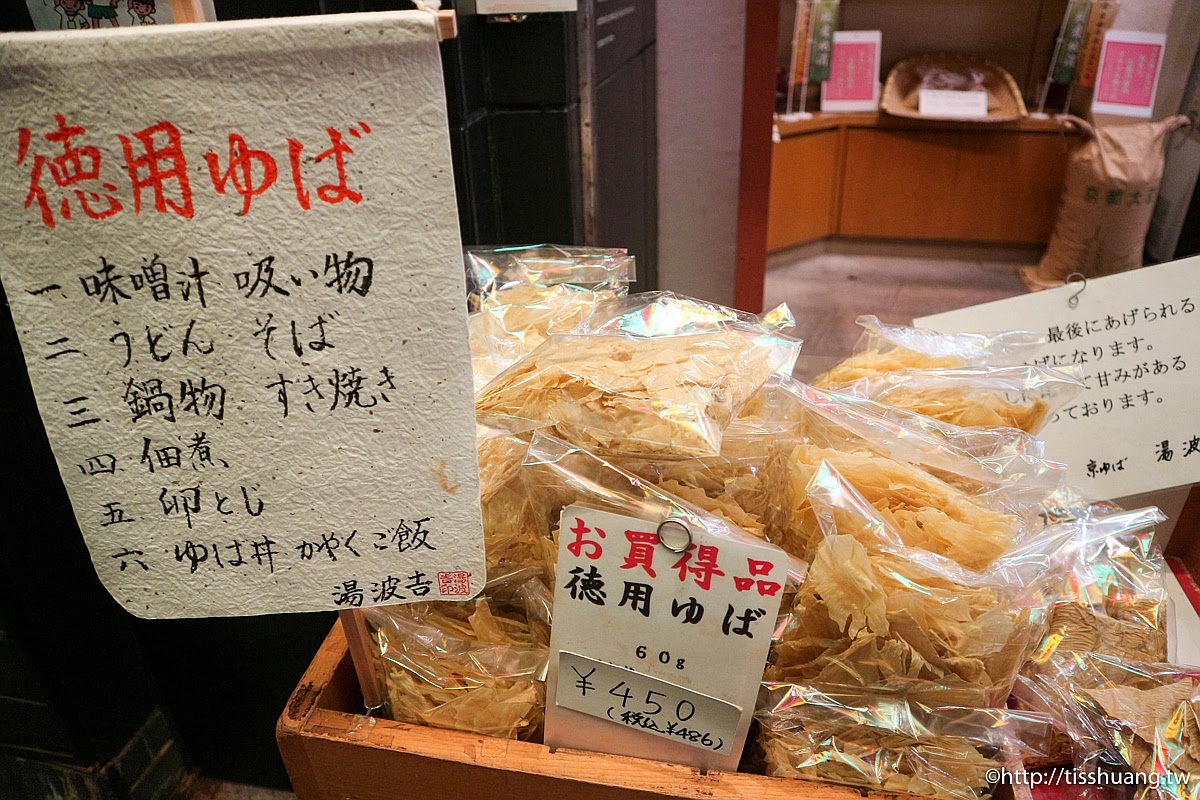 徳用ゆば
一 味噌汁 吸い物
二 うどん そば
三 鍋物 すき焼き
四 佃煮
五 卵とじ
六 ゆば丼 かやくご飯
湯波吉
お買得品
徳用ゆば
60g
¥450
(税込¥486)
最後にあげられる
ばになります。
て甘みがある
っております。
京ゆば 湯波
京都大
©http://tisshuang.tw